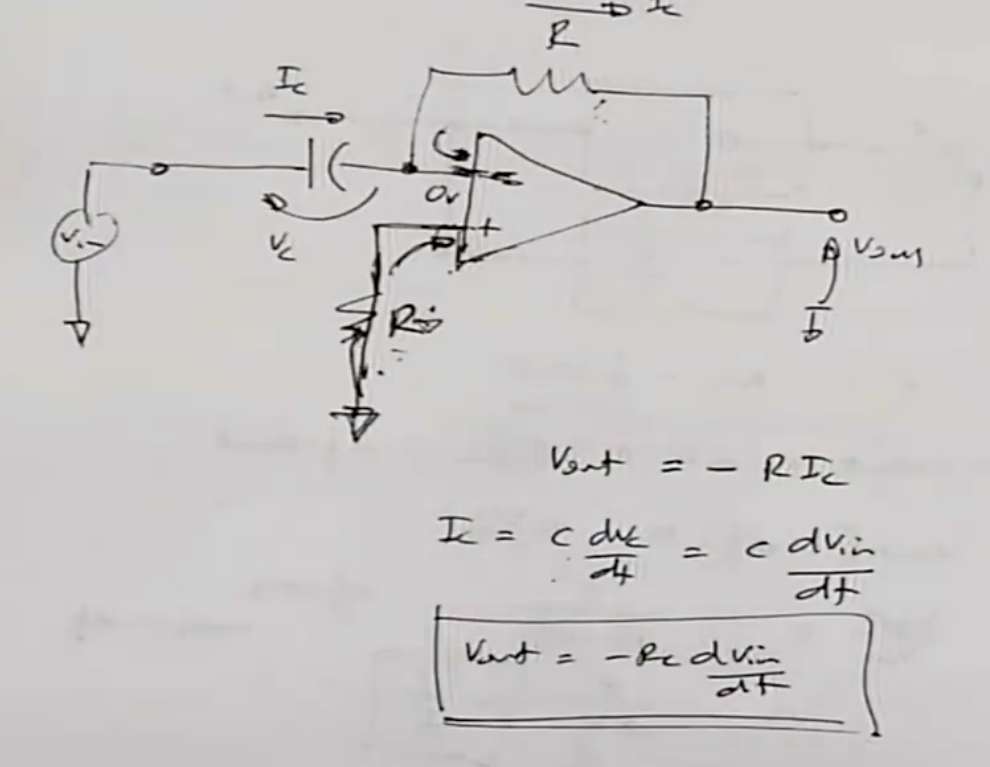 Ic
R
Ic
Vin
Vc
0v
-
+
R
Vout
Vout = - R Ic
Ic = C dvc/dt = C dVin/dt
Vout = -RC dVin/dt